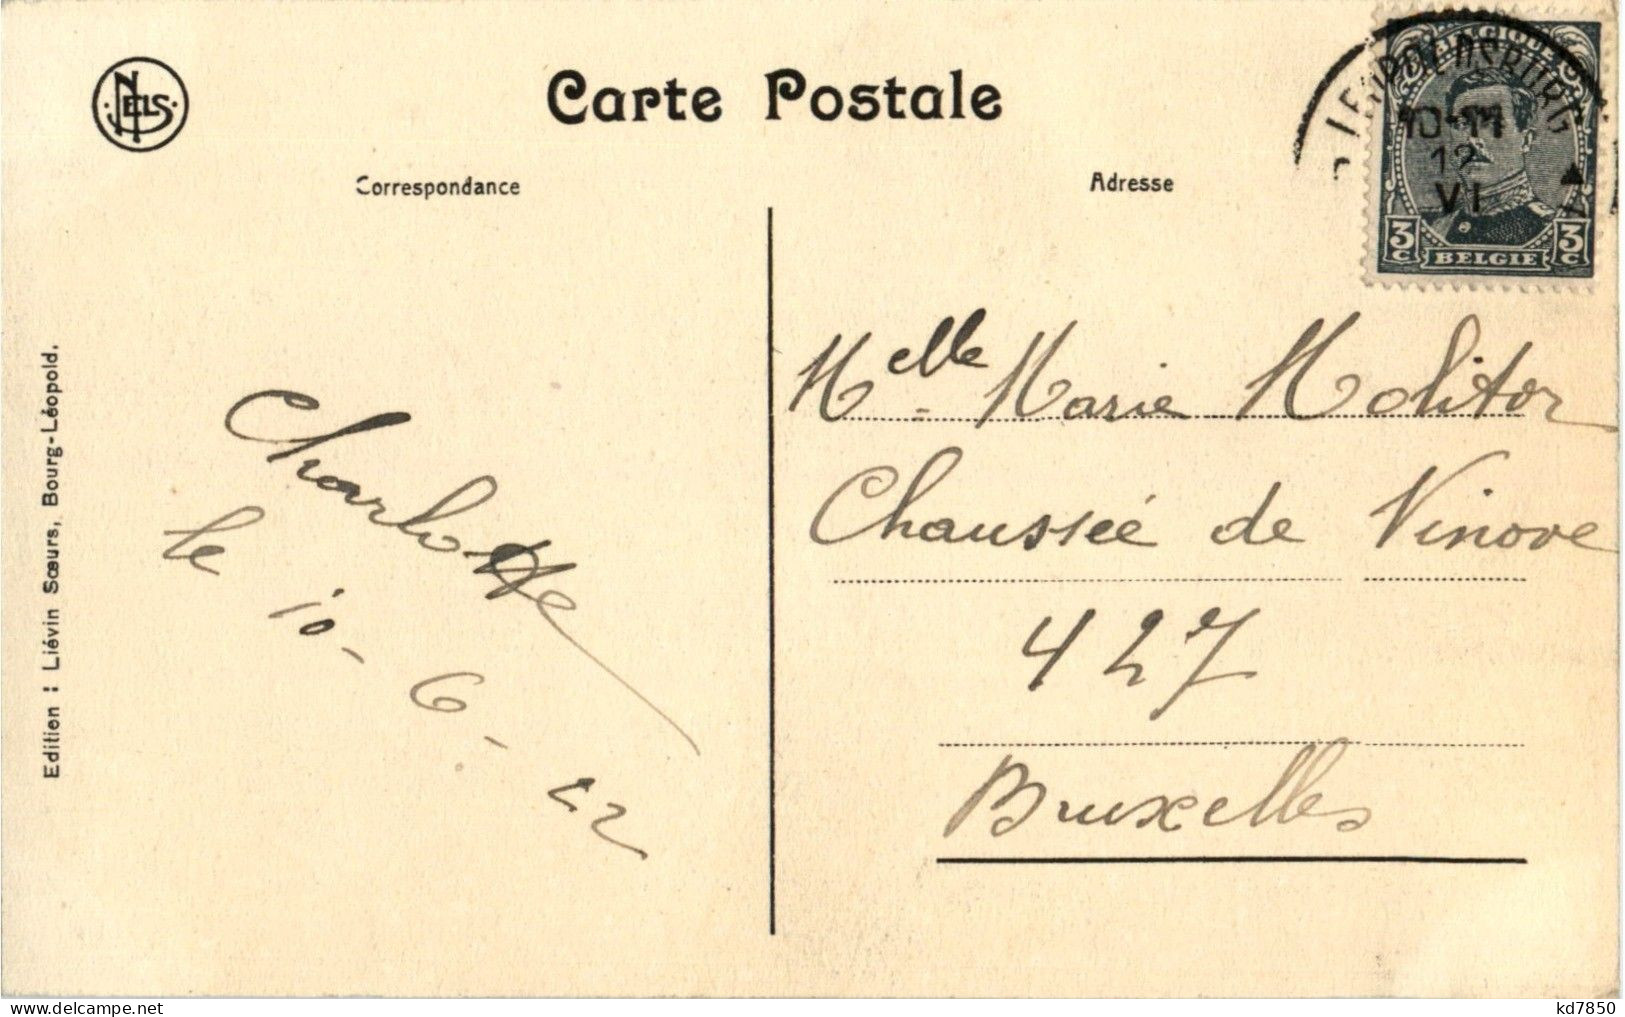 NELS
Carte Postale
Correspondance
Adresse
BELGIQUE
LEOPOLDSBURG
10-11
12
VI
3 C
3 C
BELGIE
Edition : Liévin Sœurs, Bourg-Léopold.
Charlotte
le 10-6-22
Melle Marie Molitor
Chaussée de Ninove
427
Bruxelles
delcampe.net
kd7850